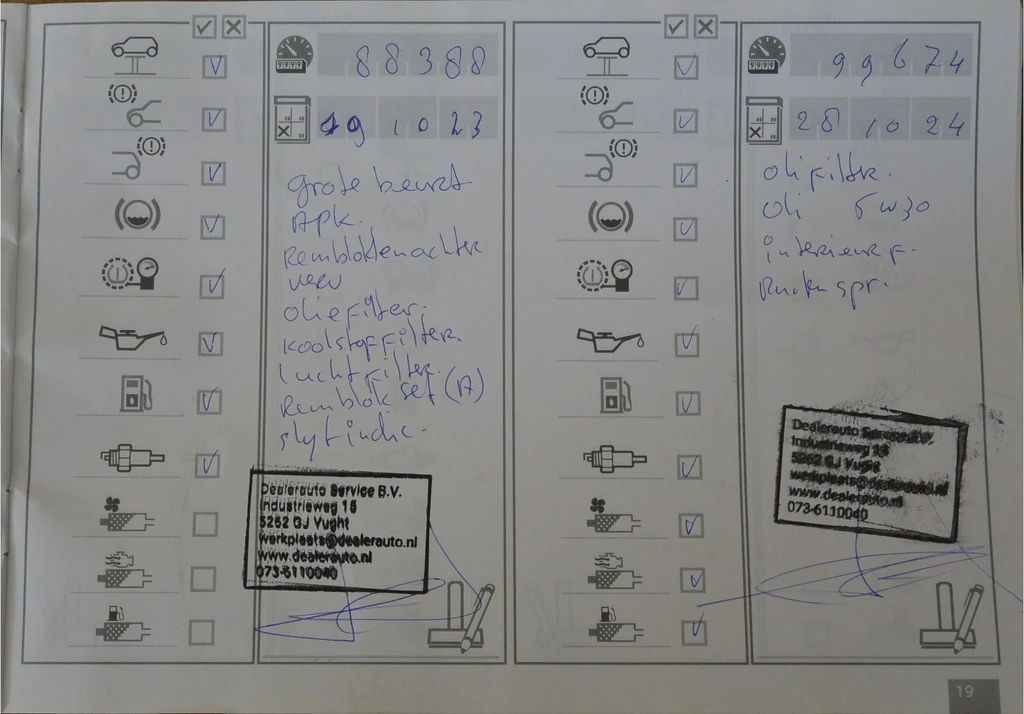 88388
19 10 23
grote beurt
APK.
Remblokken achter
olie filter.
koolstoffilter.
luchtfilter.
Remblok set (A)
Dealerauto Service B.V.
Industrieweg 15
5262 GJ Vught
werkplaats@dealerauto.nl
www.dealerauto.nl
073-6110040
99674
28 10 24
oli filter.
oli 5w30
interieur f.
Dealerauto Service B.V.
Industrieweg 15
5262 GJ Vught
werkplaats@dealerauto.nl
www.dealerauto.nl
073-6110040
19